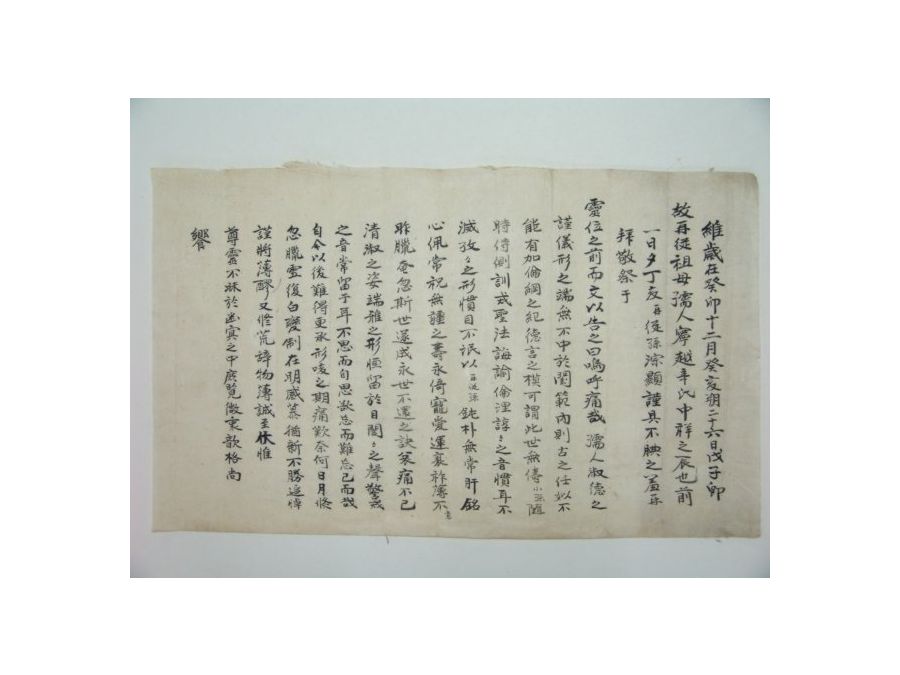 維歲在癸卯十二月癸亥朔二十六日戊子卽
故再從祖母孺人寧越辛氏中祥之辰也前
一日夕丁亥再從孫淙顯謹具不腆之羞再
拜敬祭于
靈位之前而文以告之曰嗚呼痛哉孺人淑德之
謹儀形之端無不中於閨範內則古之任姒不
能有加倫綱之紀德言之模可謂此世無儔小孫隨
時侍側訓戒聖法誨諭倫理諄々之音慣耳不
滅孜々之形慣目不泯以再從孫鈍朴無常肝銘
心佩常祝無疆之壽永倚寵愛運衰祚薄不
昨臘奄忽斯世遽成永世不還之訣哀痛不已
淸淑之姿端雅之形恒留於目誾々之聲警戒
之音常留于耳不思而自思欲忘而難忘已而哉
自今以後難得更承形唆之期痛歎奈何日月倏
忽臘雪復白變制在明感慕猶新不勝追悼
謹將薄醪又修荒辭物薄誠至伏惟
尊靈不昧於幽冥之中庶覽微衷歆格尚
饗